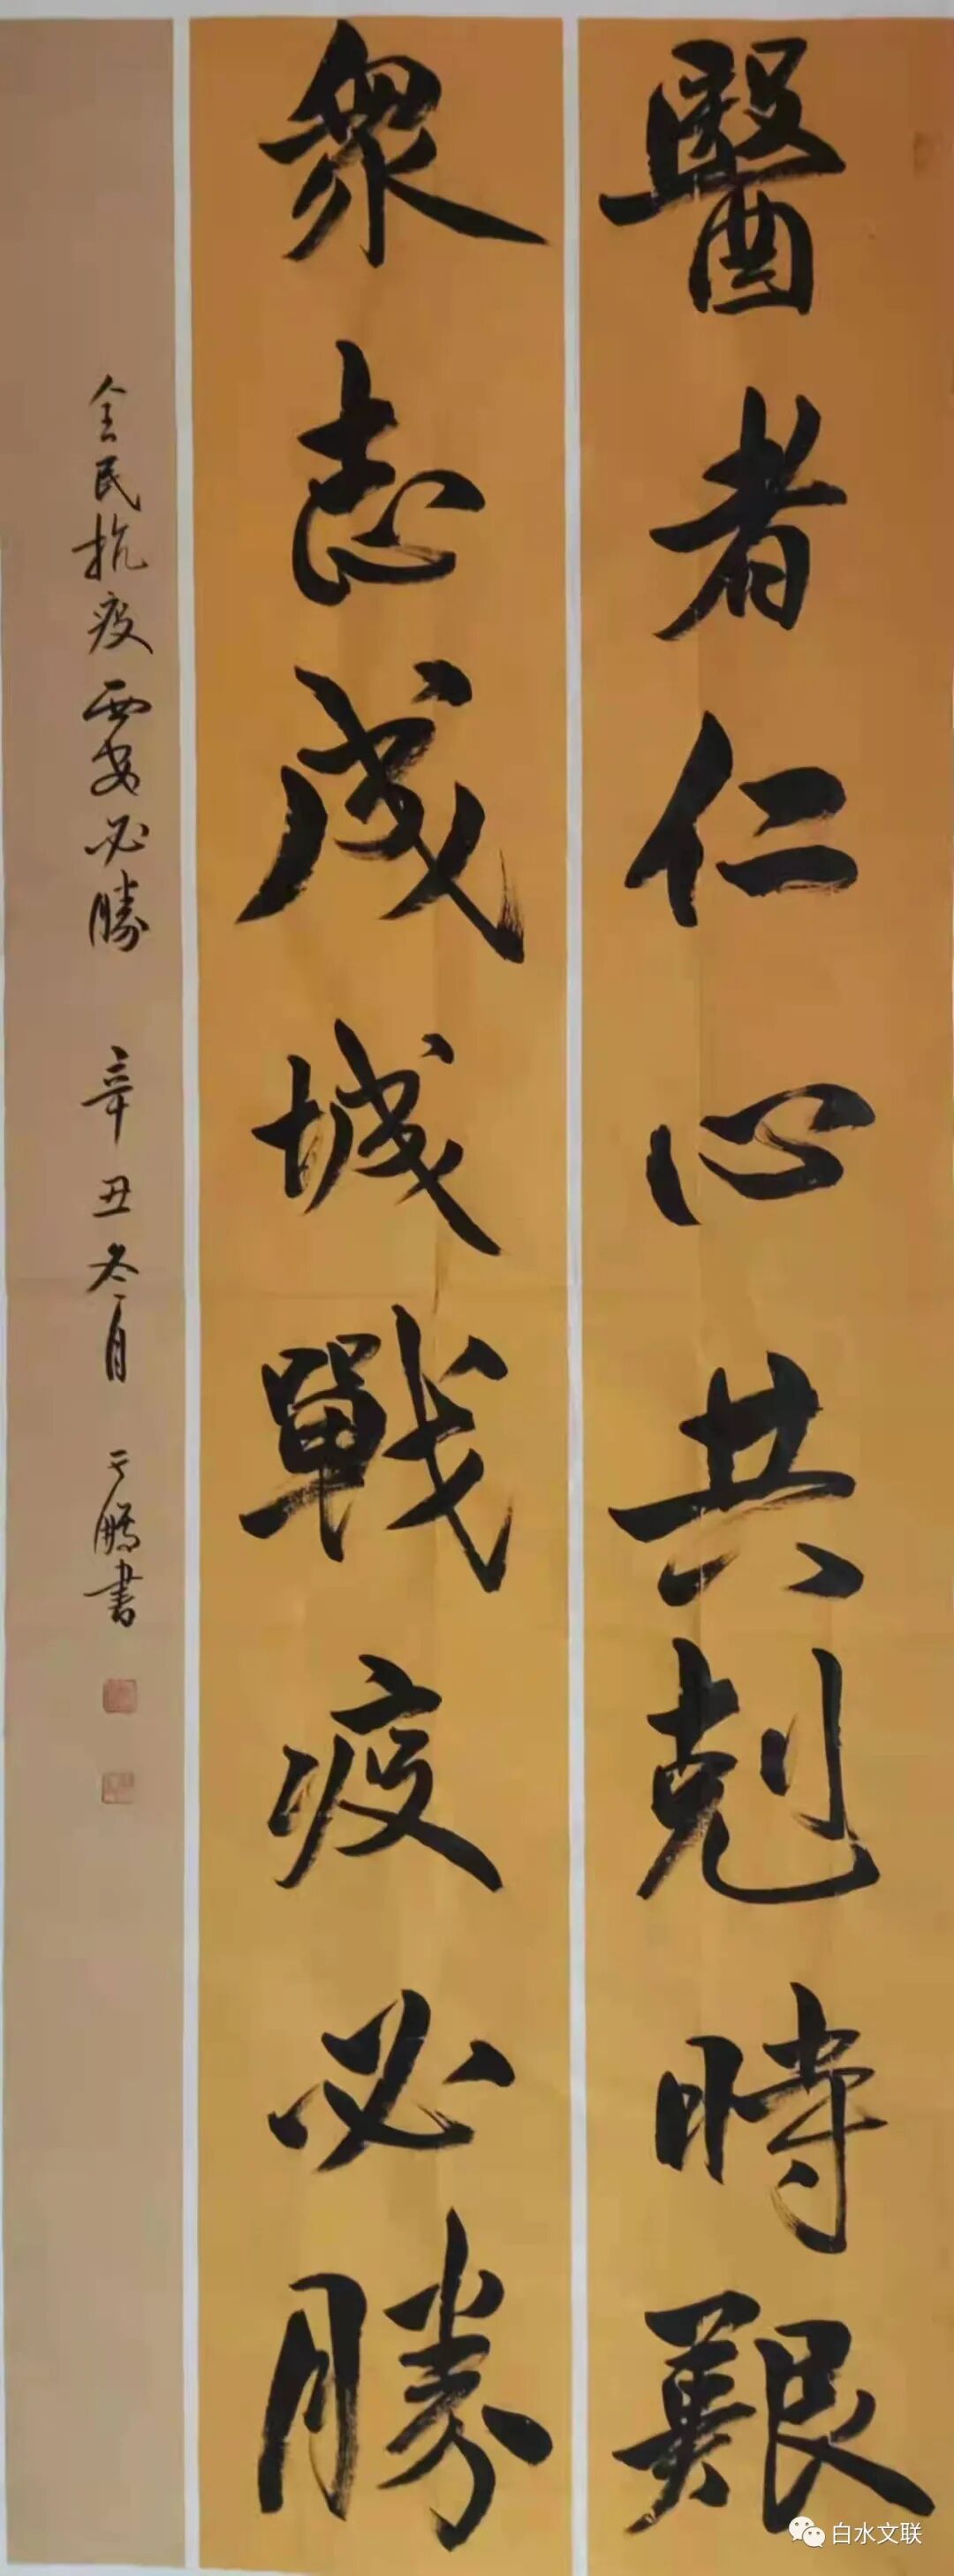 醫者仁心共剋時艱
衆志成城戰疫必勝
全民抗疫西安必勝 辛丑冬月 于鵬書
白水文联